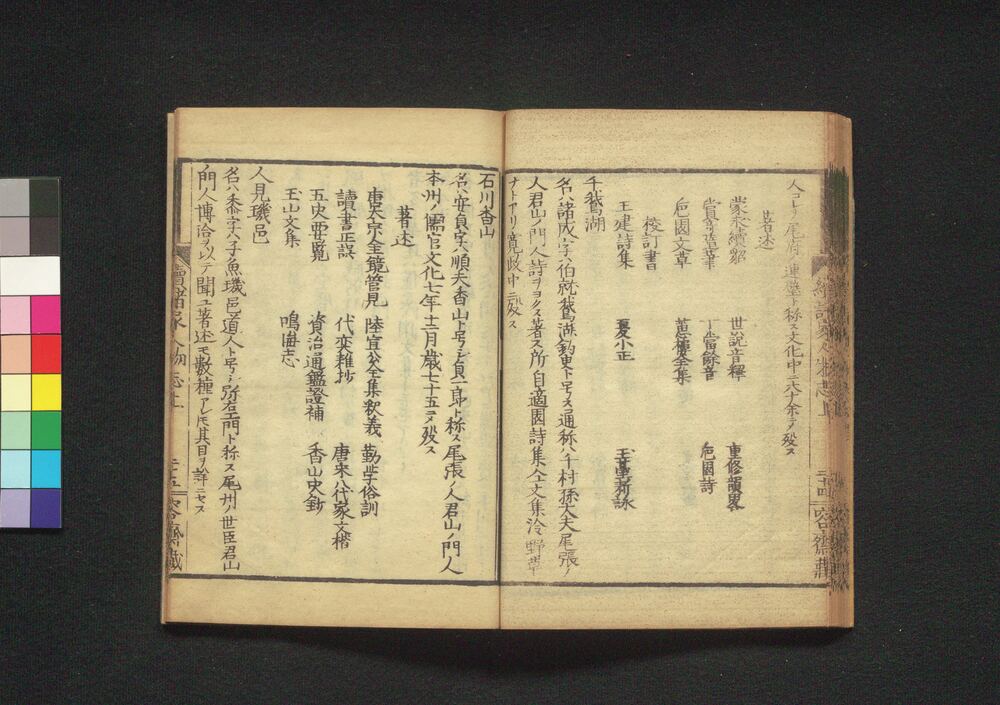 人コレヲ尾府ノ連璧ト称ス文化中六十余ニテ歿ス
著述
蒙求續貂 世説音釋 重修韻畧
丁當餘音 巵園詩
巵園文草 集
校訂書
王建詩集 夏小正 新詠
千鵞湖
名ハ諸成字ハ伯就鵞湖釣叟ト号ス通称ハ千村孫大夫尾張ノ
人君山ノ門人詩ヲヨクス著ス所自適園詩集仝文集泠野草
ナトアリ寛政中ニ歿ス
石川香山
名ハ安貞字ハ順夫香山ト号シ貞一郎ト称ス尾張ノ人君山ノ門人
本州ノ儒官文化七年十二月歳七十五ニテ歿ス
著述
唐太宗金鏡管見 陸宣公全集釈義 勤学俗訓
讀書正誤 代奕雑抄 唐宋八代家文楷
五史要覧 資治通鑑證補 香山史鈔
玉山文集 鳴海志
人見璣邑
名ハ桼字ハ子魚璣邑道人ト号シ弥右エ門ト称ス尾州ノ世臣君山
ノ門人博洽ヲ以テ聞ユ著述モ數種アレ𪜈其目ヲ詳ニセス
續諸家人物志上 二十五 容齋藏